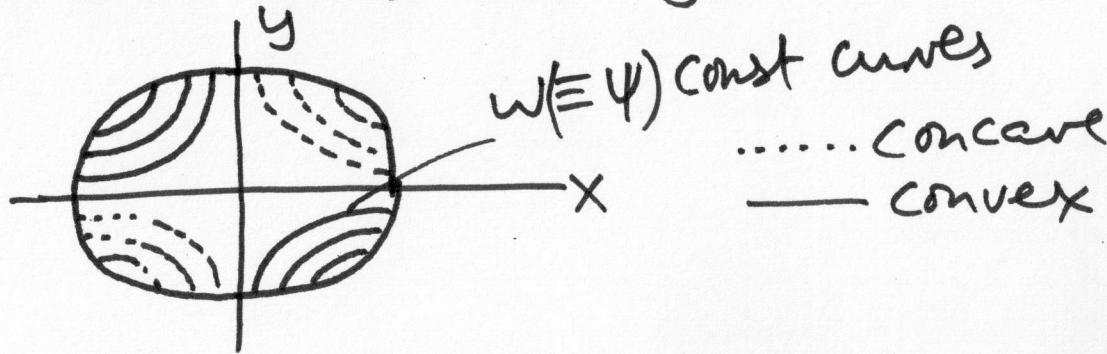 y
w(≡ψ) const curves
...... concave
—— convex
x